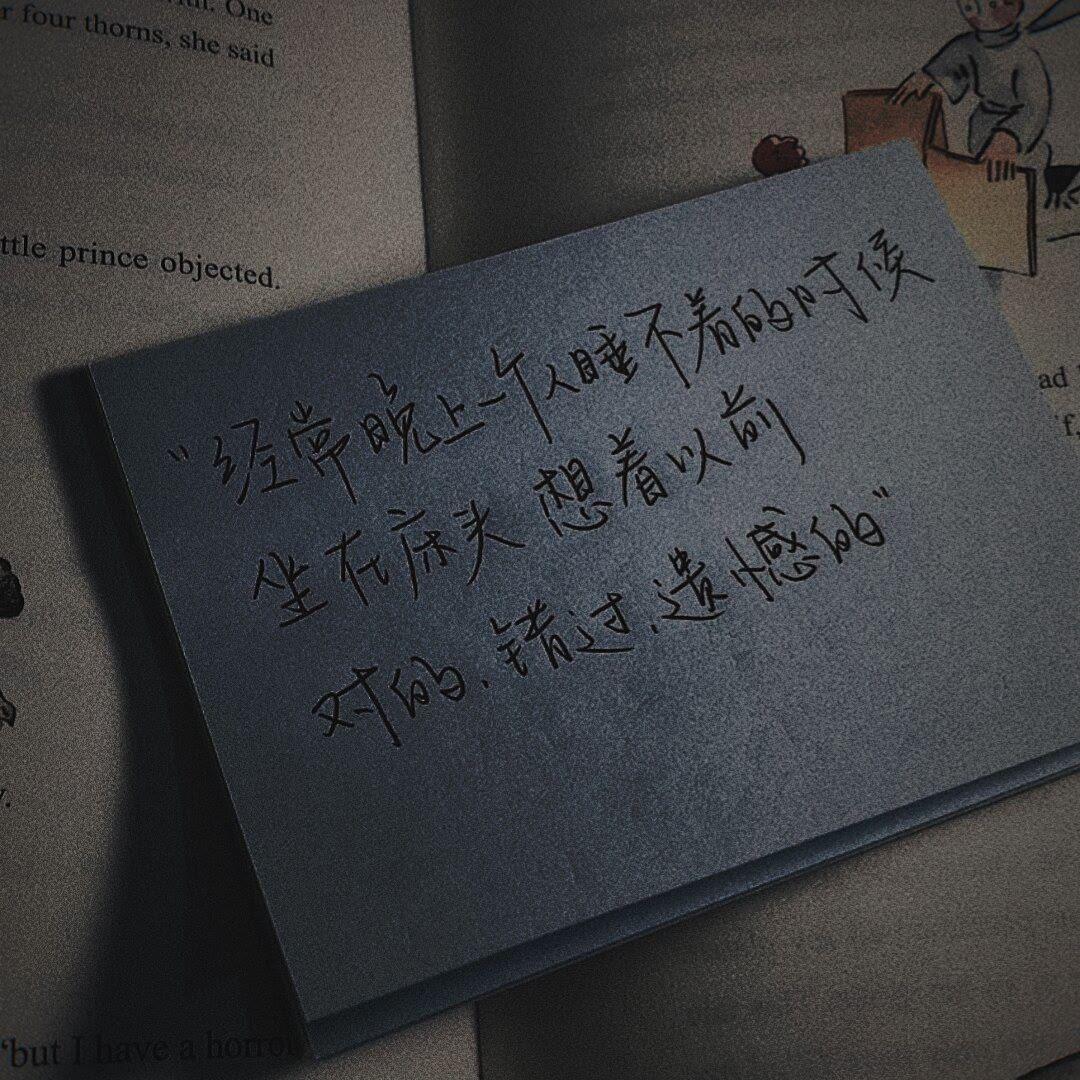 One
r four thorns, she said
ttle prince objected.
"经常晚上一个人睡不着的时候
坐在床头 想着以前
对的.错过.遗憾的"
ad
'f.
y.
'but I have a horrou